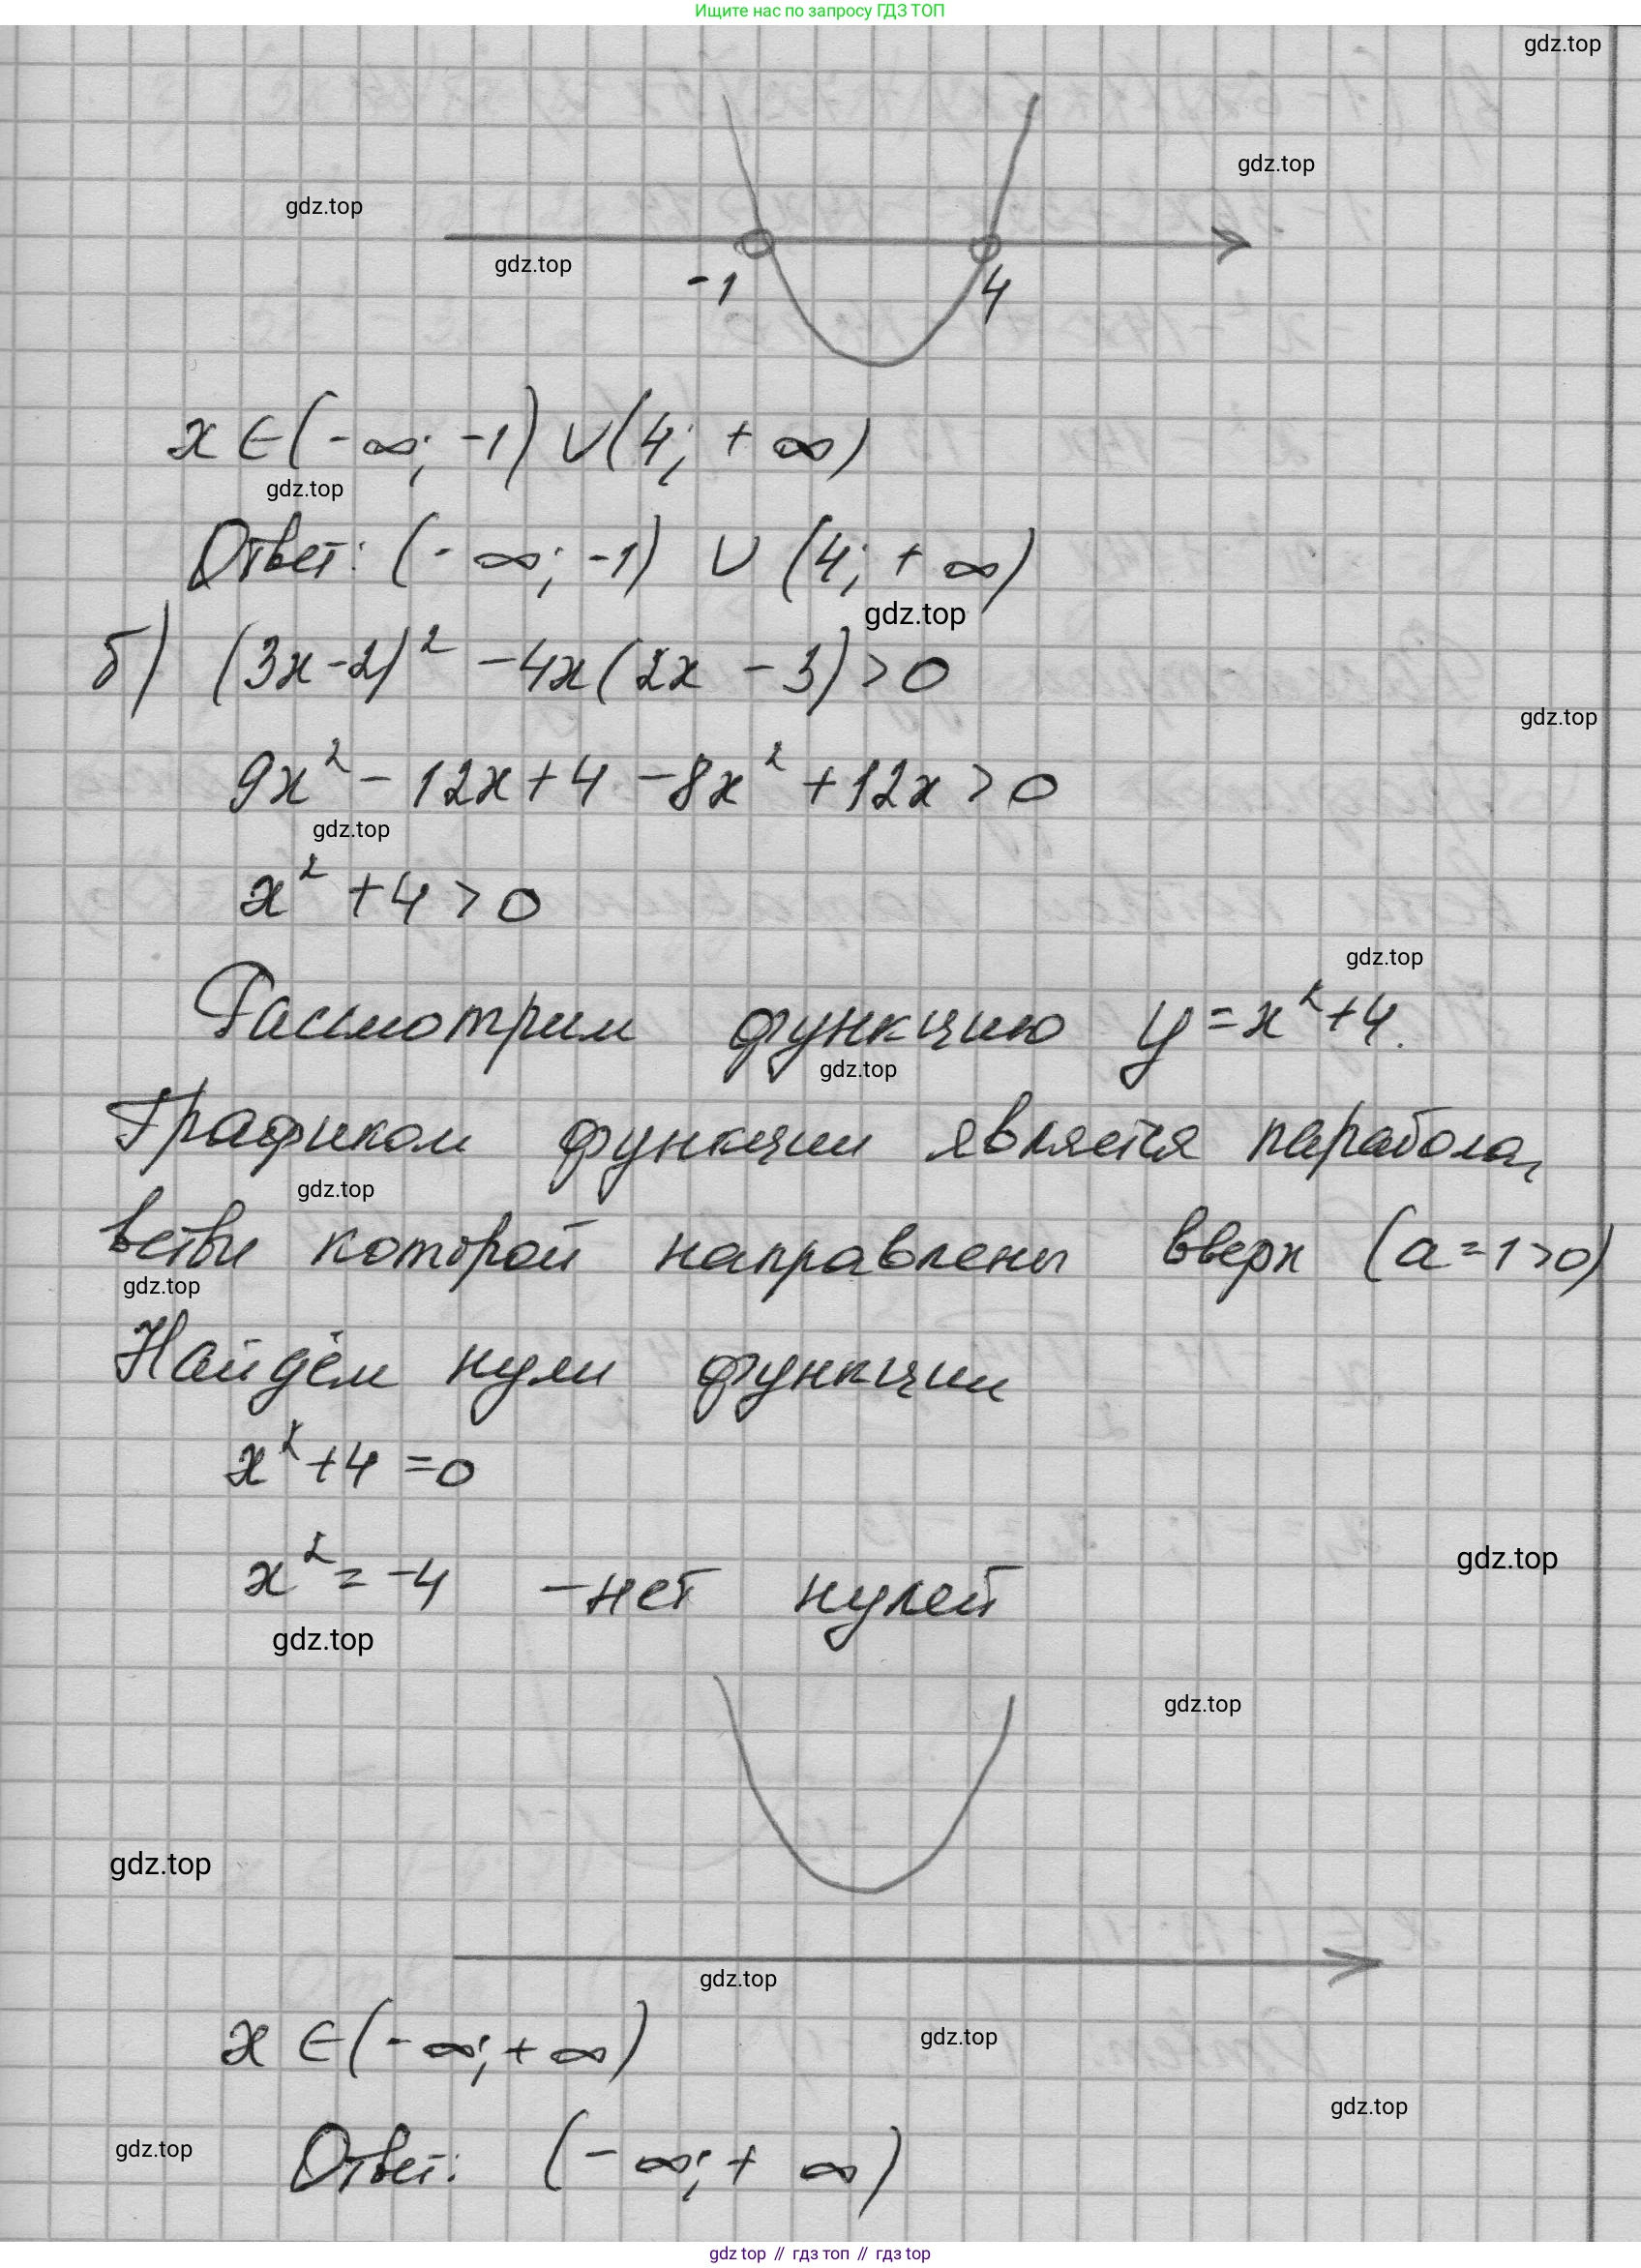 Ищите нас по запросу ГДЗ ТОП
gdz.top
gdz.top
gdz.top
gdz.top
-1 4
x ∈ (-∞; -1) ∪ (4; +∞)
gdz.top
Ответ: (-∞; -1) ∪ (4; +∞)
gdz.top
б) (3x-2)² -4x(2x - 3) > 0
gdz.top
9x² - 12x + 4 - 8x² + 12x > 0
gdz.top
x² + 4 > 0
gdz.top
Рассмотрим функцию y = x² + 4.
gdz.top
Графиком функции является парабола,
gdz.top
ветви которой направлены вверх (a = 1 > 0)
gdz.top
Найдём нули функции
x² + 4 = 0
gdz.top
x² = -4 - нет нулей
gdz.top
gdz.top
gdz.top
gdz.top
x ∈ (-∞; +∞)
gdz.top
gdz.top
Ответ: (-∞; +∞)
gdz.top
gdz top // гдз топ // гдз top